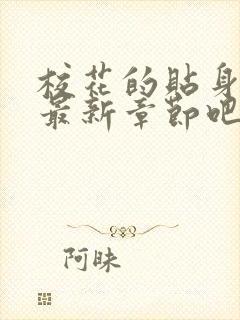 校花的貼身
最新章節吧
阿昧